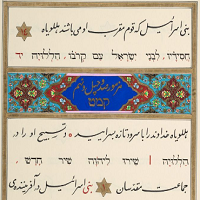 بنی اسرائیل که قوم مقرب او می باشند هللویاه
חסידיו לבני ישראל עם קרבו הללויה יד
مزمور صد و چهل و نهم
קמט
هللویاه خداوند را با سرود تازه بسرایید و تسبیح او را در
הללויה שירו ליהוה שיר חדש
جماعت مقدسان بنی اسرائیل در آفریننده